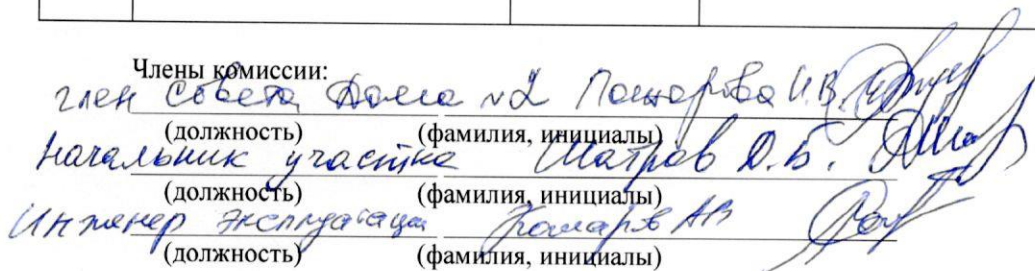 Члены комиссии:
член совета Дома №2 И.В.
(должность) (фамилия, инициалы)
Начальник участка Шатров О.Б.
(должность) (фамилия, инициалы)
Инженер эксплуатации Комаров АВ
(должность) (фамилия, инициалы)